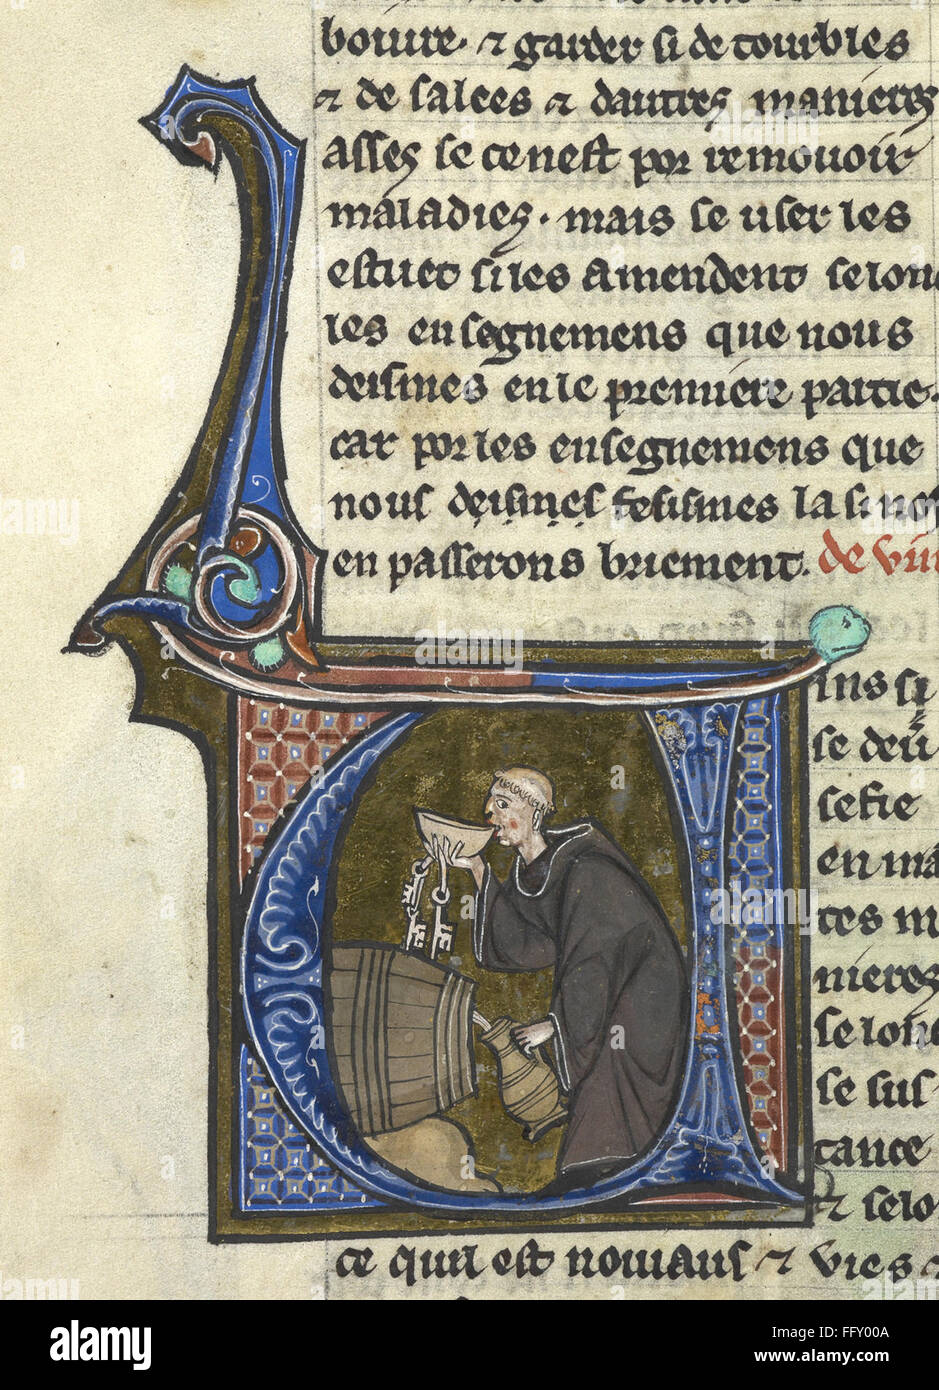 boivre. ⁊ garder si de tourbles
⁊ de salees ⁊ dautres manieres
asses se ce nest por remouvoir
maladies. mais se user les
estuet si les amendent selonc
les ensegnemens que nous
deismes en le premiere partie.
car por les ensegnemens que
nous deismes fesismes la sinos
en passerons briement. de vin
ins si
se deu
selonc
se sus
tance
⁊ selo
ce quil est nouiaus ⁊ vies ⁊
alamy
Image ID: FFY00A
www.alamy.com